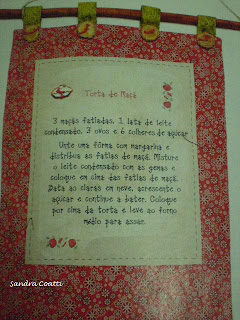 Torta de Maçã
3 maçãs fatiadas, 1 lata de leite
condensado, 3 ovos e 6 colheres de açúcar
Unte uma fôrma com margarina e
distribua as fatias de maçã. Misture
o leite condensado com as gemas e
coloque em cima das fatias de maçã.
Bata as claras em neve, acrescente o
açúcar e continue a bater. Coloque
por cima da torta e leve ao forno
médio para assar.
Sandra Coatti